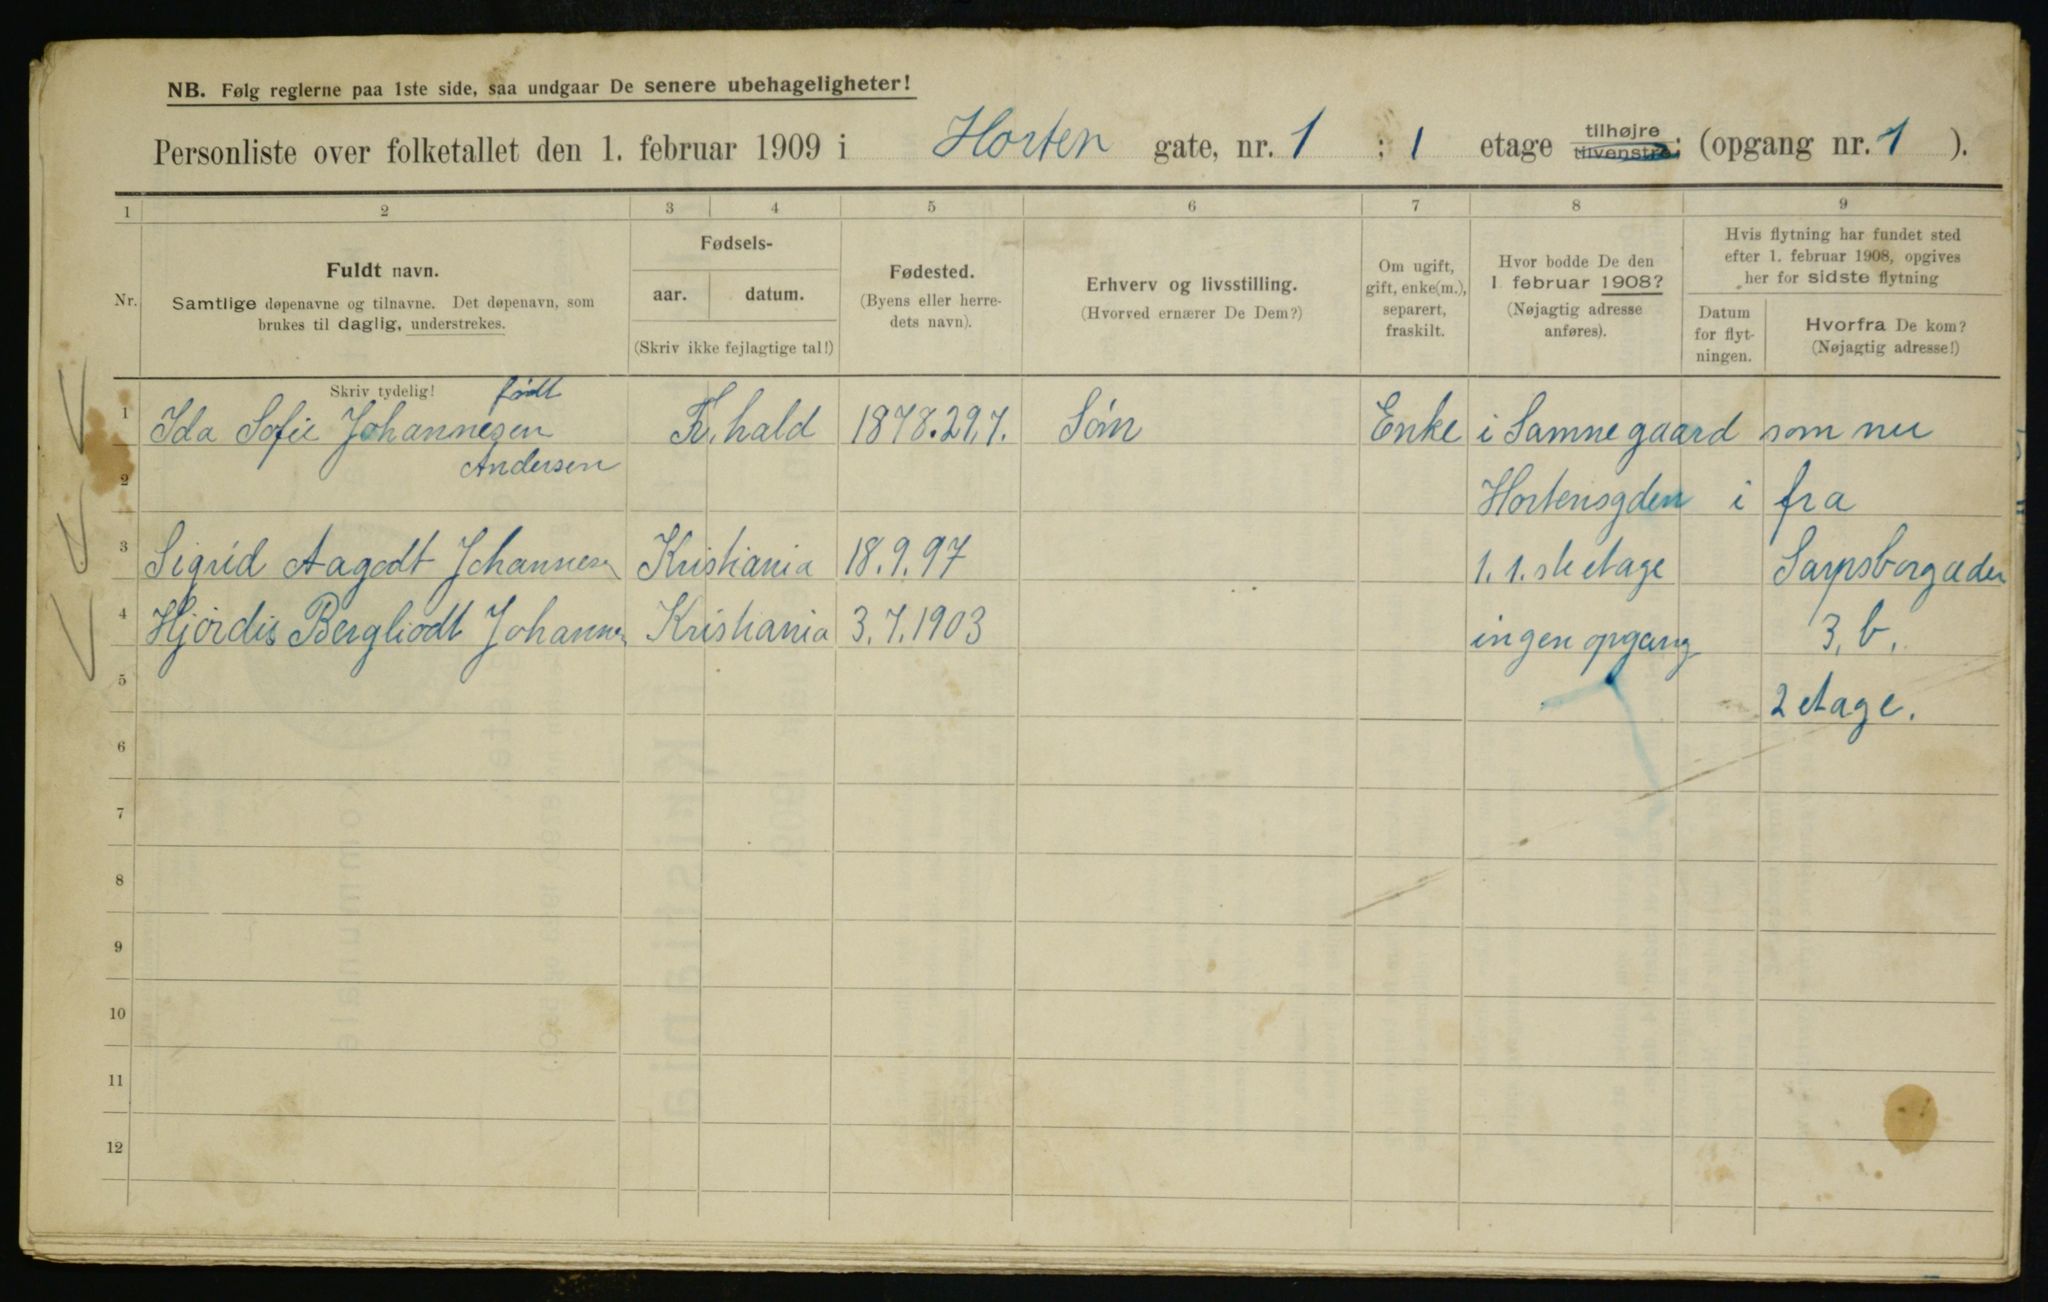 NB. Følg reglerne paa 1ste side, saa undgaar De senere ubehageligheter!
Personliste over folketallet den 1. februar 1909 i Horten gate, nr. 1 ; 1 etage tilhøjre tilvenstre; (opgang nr. 1 ).
1 2 3 4 5 6 7 8 9
Nr.
Fuldt navn.
Samtlige døpenavne og tilnavne. Det døpenavn, som
brukes til daglig, understrekes.
Fødsels-
aar. datum.
(Skriv ikke fejlagtige tal!)
Fødested.
(Byens eller herre-
dets navn).
Erhverv og livsstilling.
(Hvorved ernærer De Dem?)
Om ugift,
gift, enke(m.),
separert,
fraskilt.
Hvor bodde De den
1 februar 1908?
(Nøjagtig adresse
anføres).
Hvis flytning har fundet sted
efter 1. februar 1908, opgives
her for sidste flytning
Datum
for flyt-
ningen.
Hvorfra De kom?
(Nøjagtig adresse!)
Skriv tydelig! født
1 Ida Sofie Johannesen Fr. hald 1878.29.7. Søm Enke i Samme gaard som nu
Andersen
2 Hortensgden i fra
3 Sigrid Aagodt Johannesen Kristiania 18.9.97 1.1.ste etage Sarpsborggden
4 Hjørdis Bergliodt Johanne Kristiania 3.7.1903 ingen opgang 3.b.
5 2 etage.
6
7
8
9
10
11
12